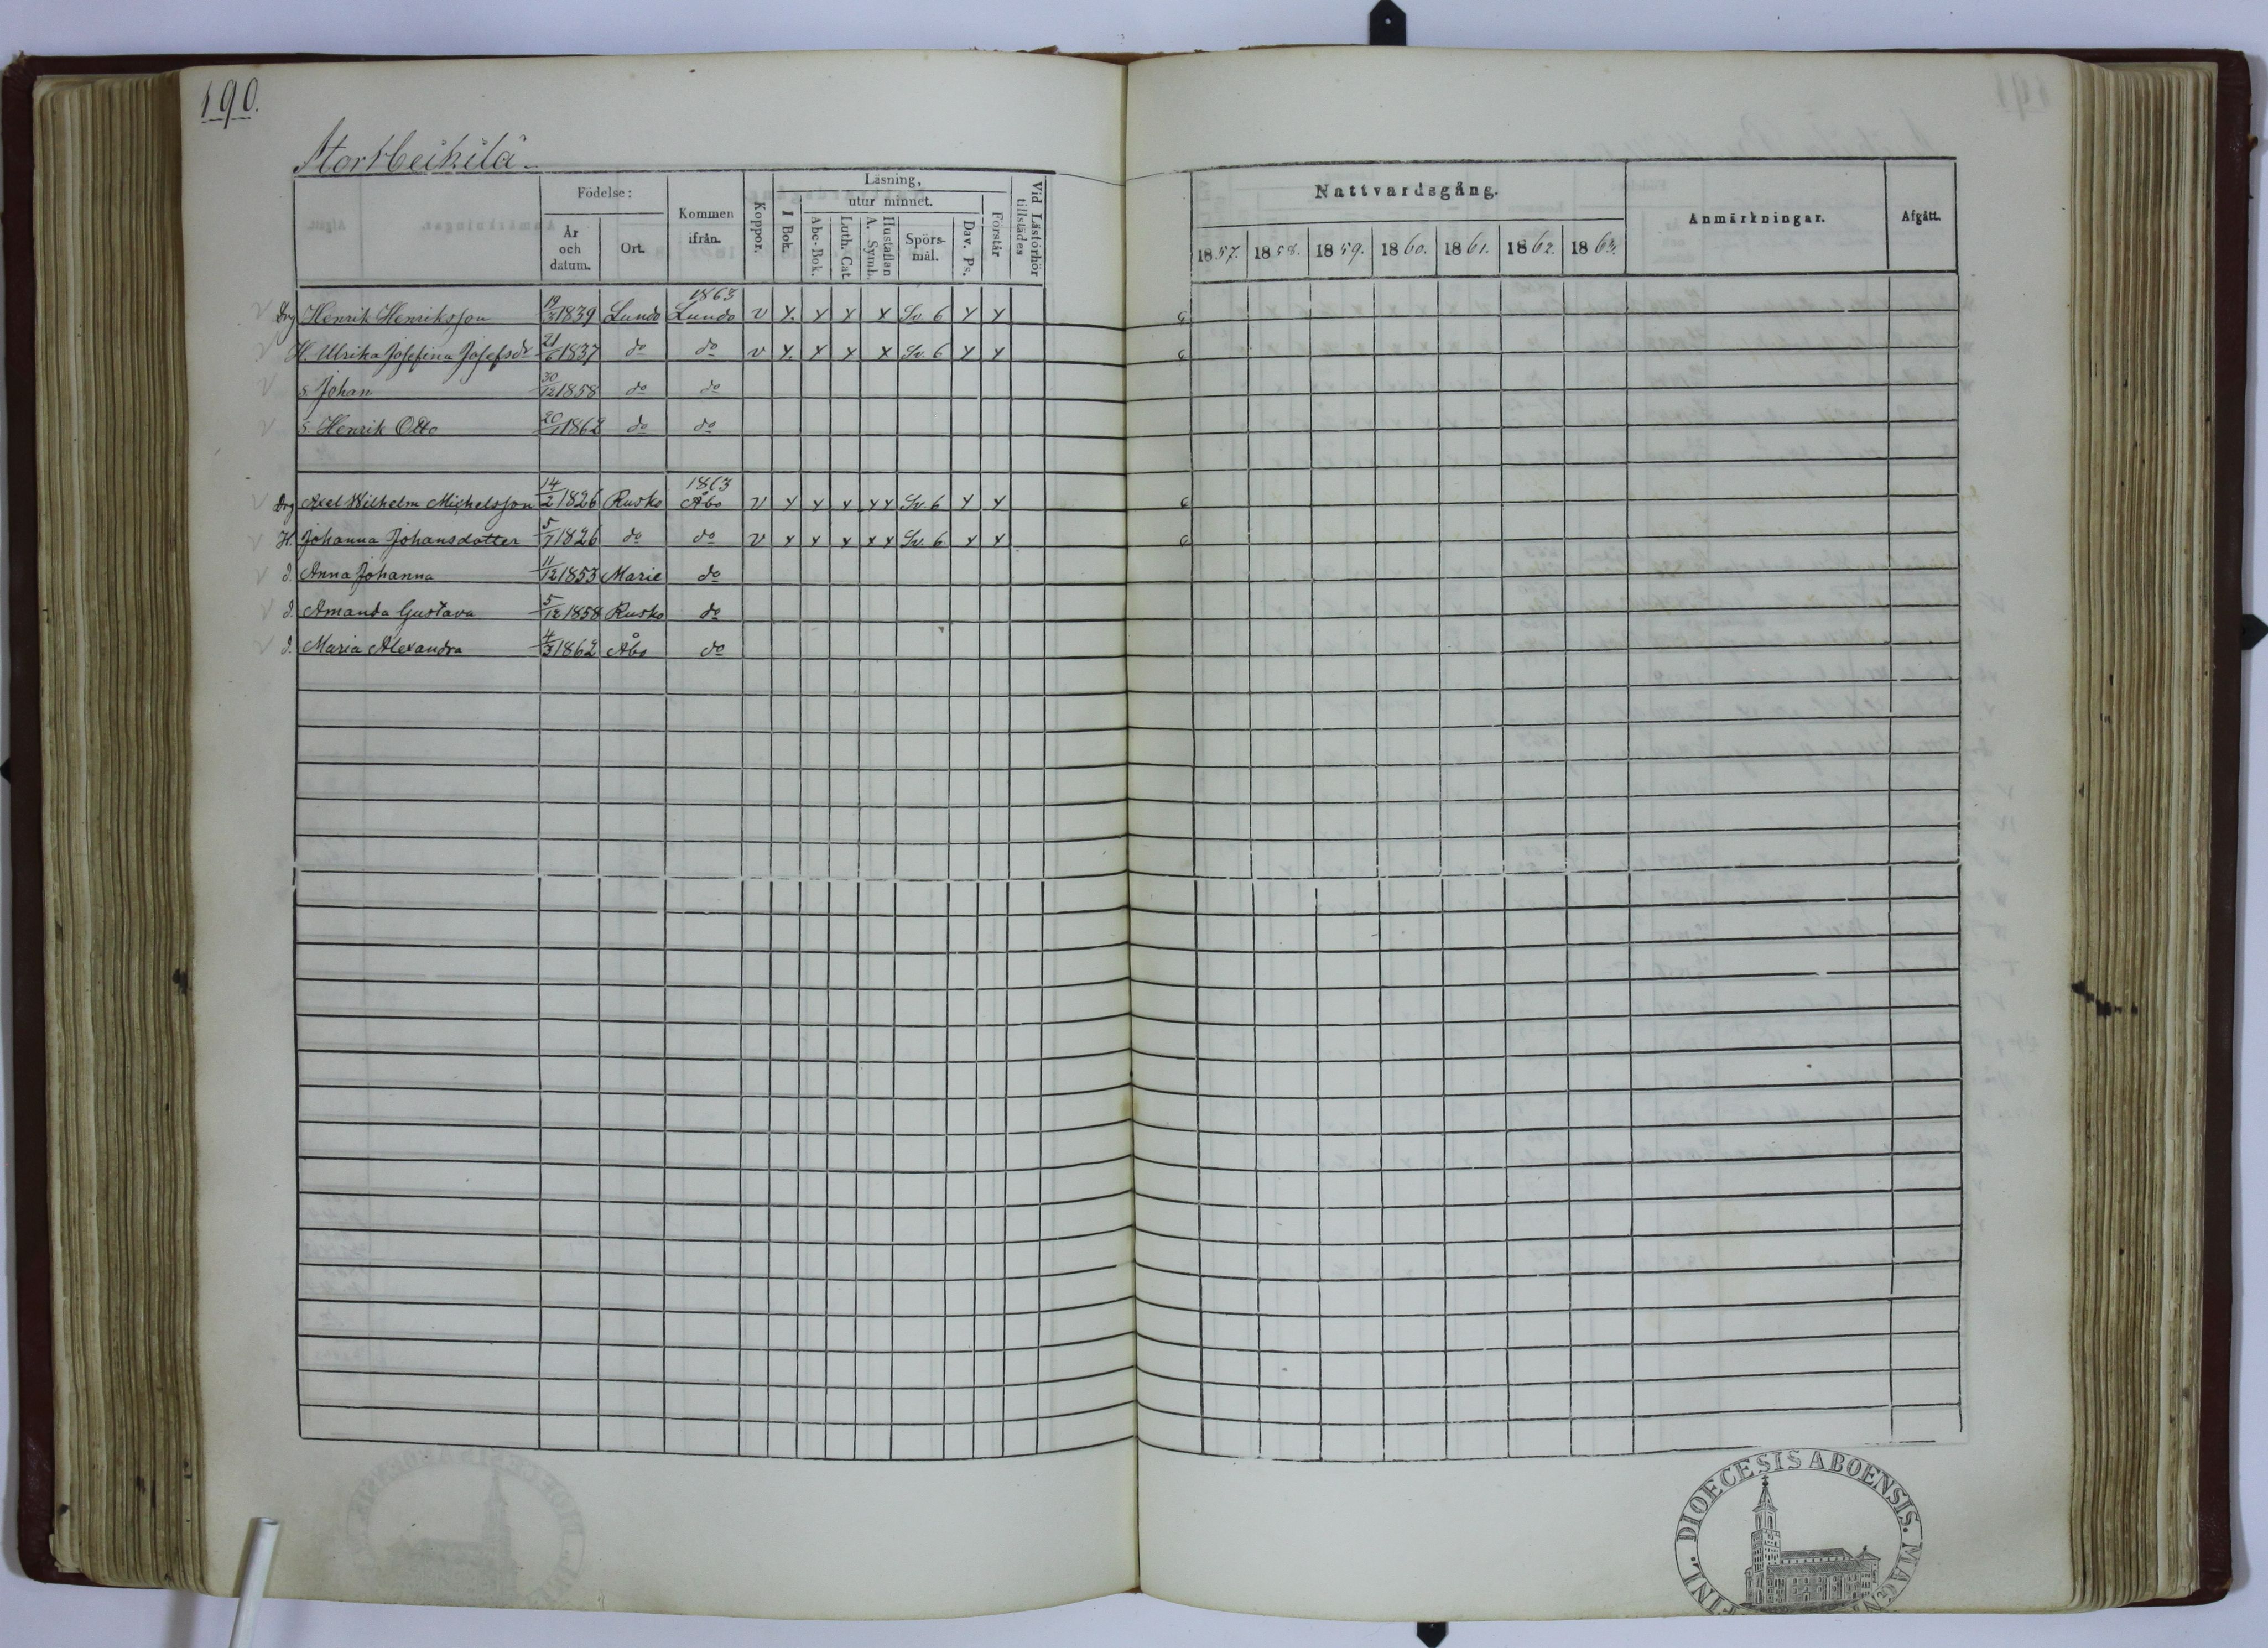 190.
Storkeikilä
Födelse:
År och datum.
Ort.
Kommen ifrån.
Koppor.
Läsning,
I Bok.
utur minnet.
Abc-Bok.
Luth. Cat.
Hustaflan A. Symb.
Spörsmål.
Dav. Ps.
Förstår
Vid Läsförhör tillstädes
Nattvardsgång.
1857. 1858. 1859. 1860. 1861. 1862. 1863.
Anmärkningar.
Afgått.
1863
v Drg Henrik Henriksson 19/3 1839 Lundo Lundo v x. x x x Sv. 6 x x
v H. Ulrika Josefina Josefsdr 1837 do do v x. x x x Sv. 6 x x
v s. Johan 30/12 1858 do do
v s. Henrik Otto 1862 do do
1863
v Drg Axel Wilhelm Michelsson 14/2 1826 Rusko Åbo v x x x x x Sv. 6 x x
v H. Johanna Johansdotter 5/7 1826 do do v x x x x x Sv. 6 x x
v d. Anna Johanna 11/12 1853 Marie do
v d. Amanda Gustava 5/12 1858 Rusko do
v d. Maria Alexandra 4/3 1862 Åbo do
FINL. DIOECESIS ABOENSIS. MAGNI